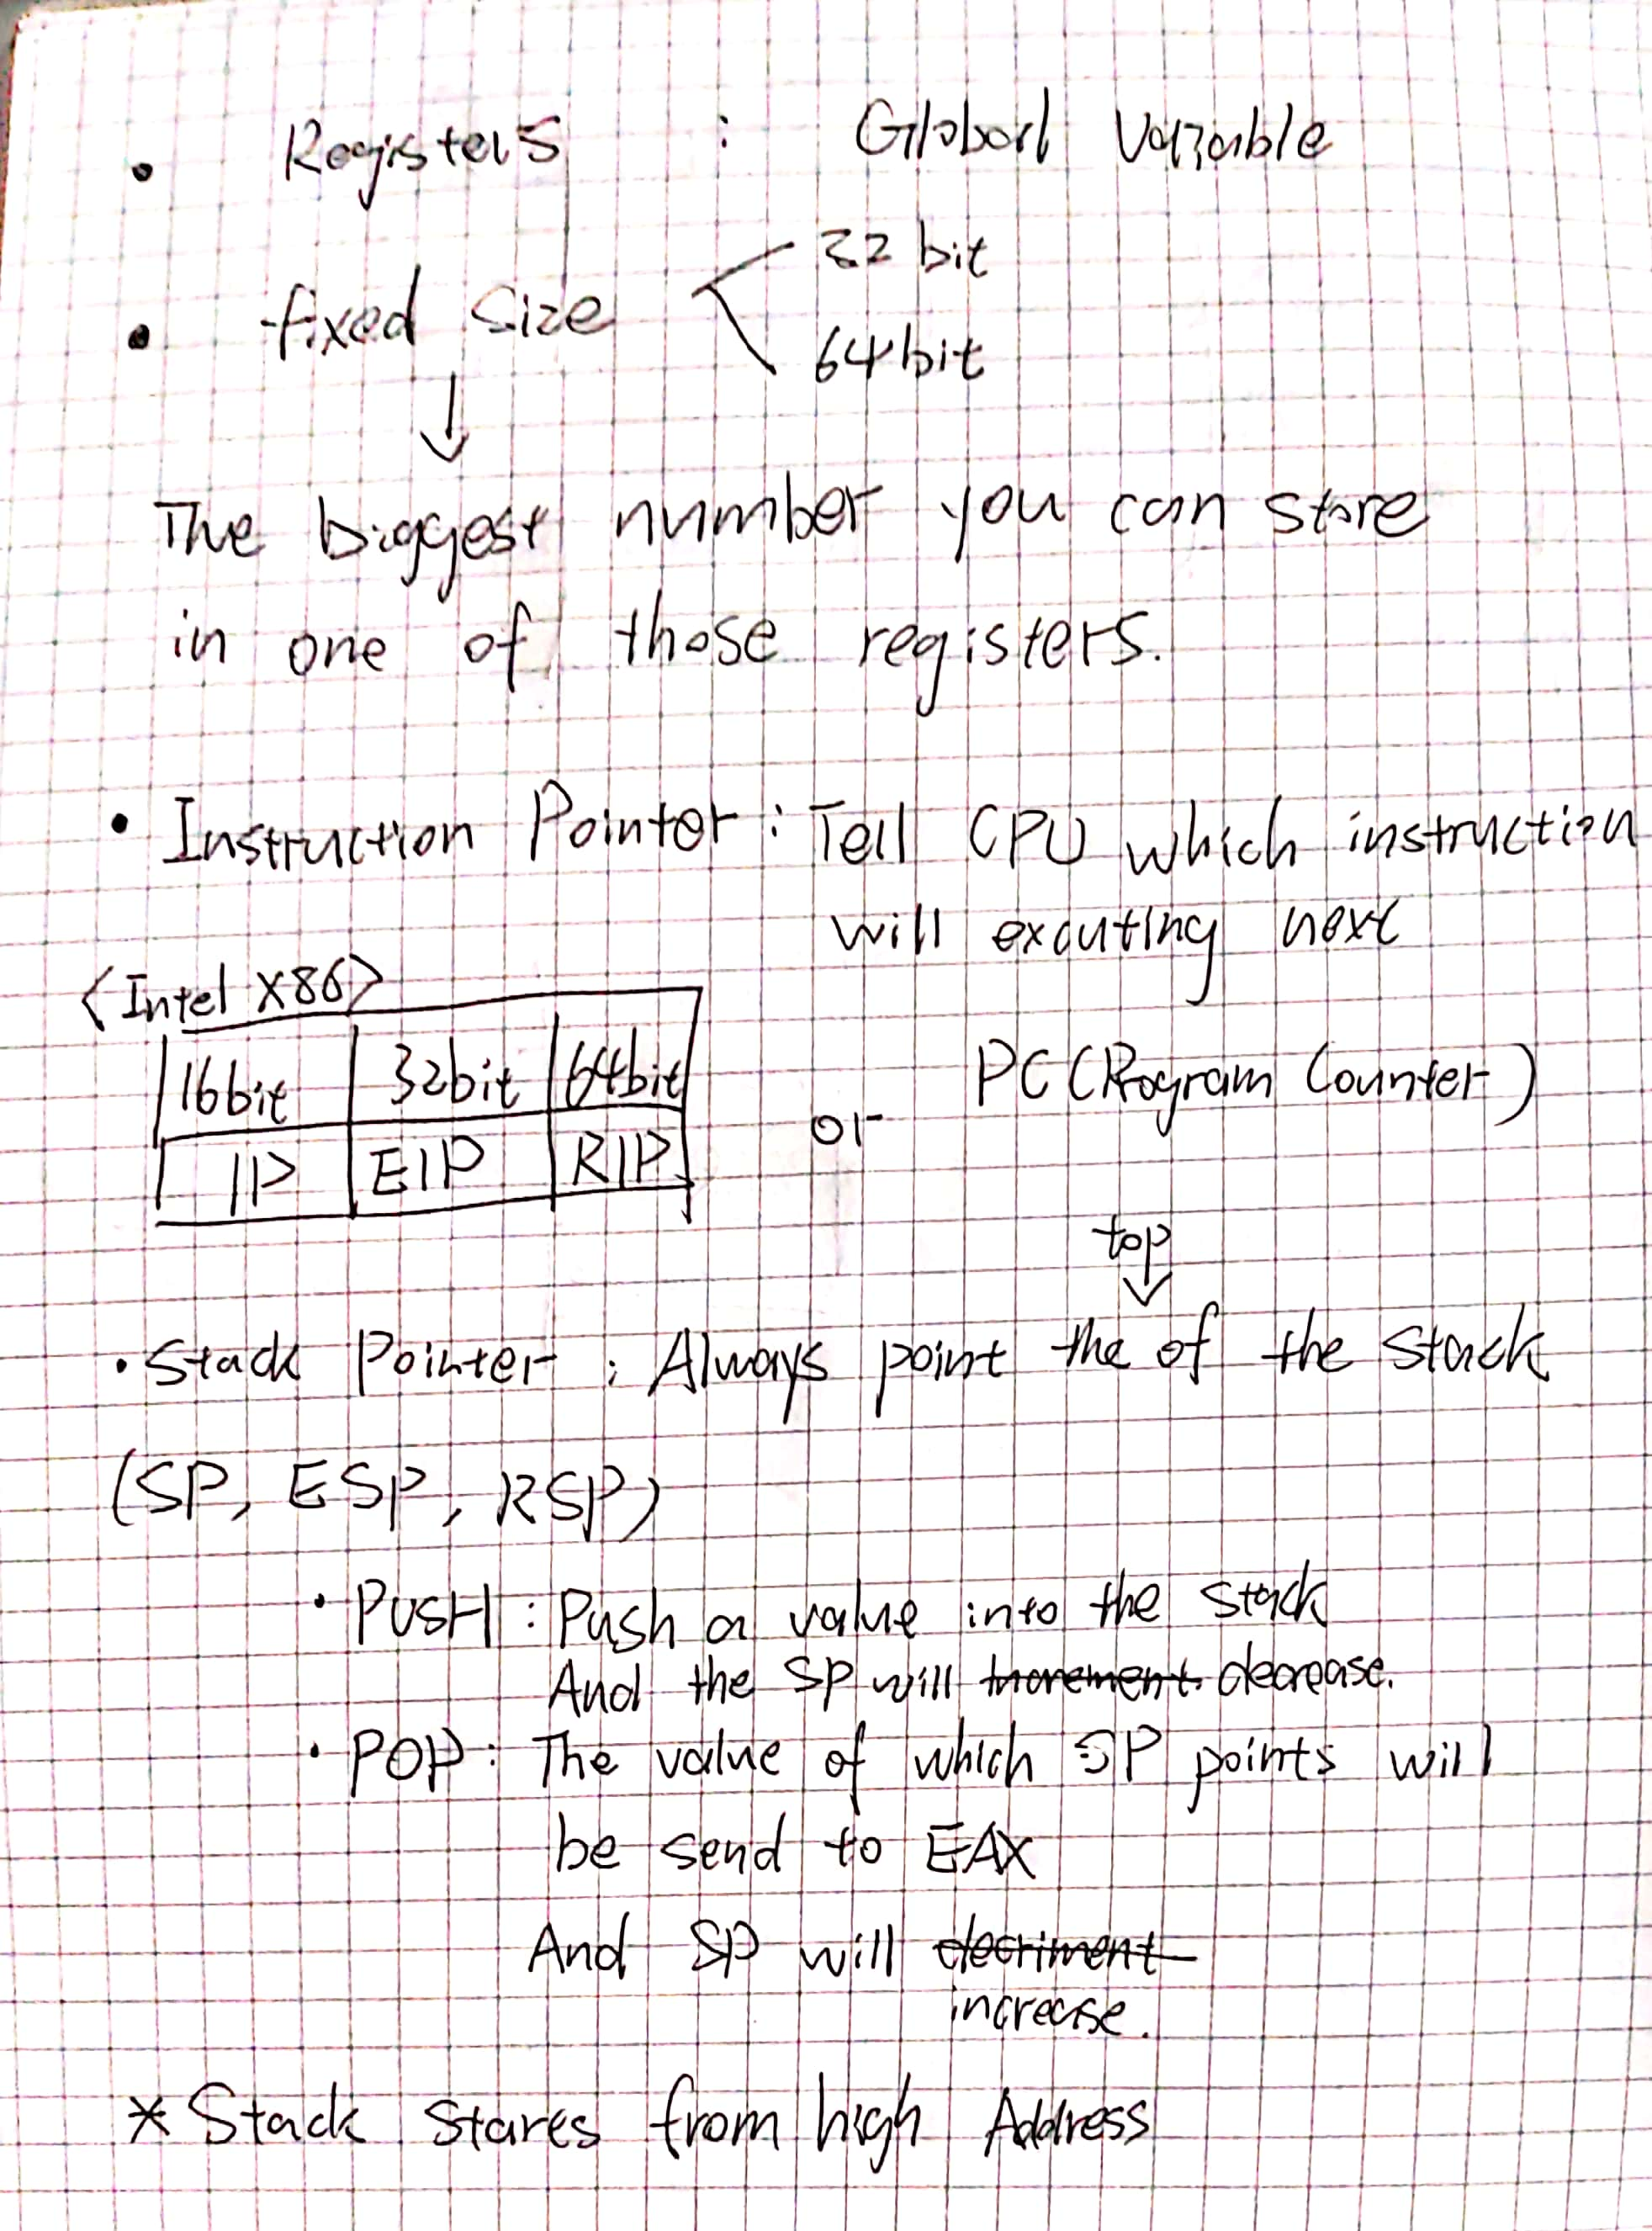 • Registers : Global Variable
• fixed size
32 bit
64 bit
↓
The biggest number you can store
in one of those registers.
• Instruction Pointer : Tell CPU which instruction
will excuting next
<Intel X86>
16bit 32bit 64bit
IP EIP RIP
or PC (Program Counter)
top
↓
• Stack Pointer : Always point the of the Stack
(SP, ESP, RSP)
• PUSH : Push a value into the stack
And the SP will increment decrease.
• POP : The value of which SP points will
be send to EAX
And SP will decriment
increase.
* Stack stares from high Address